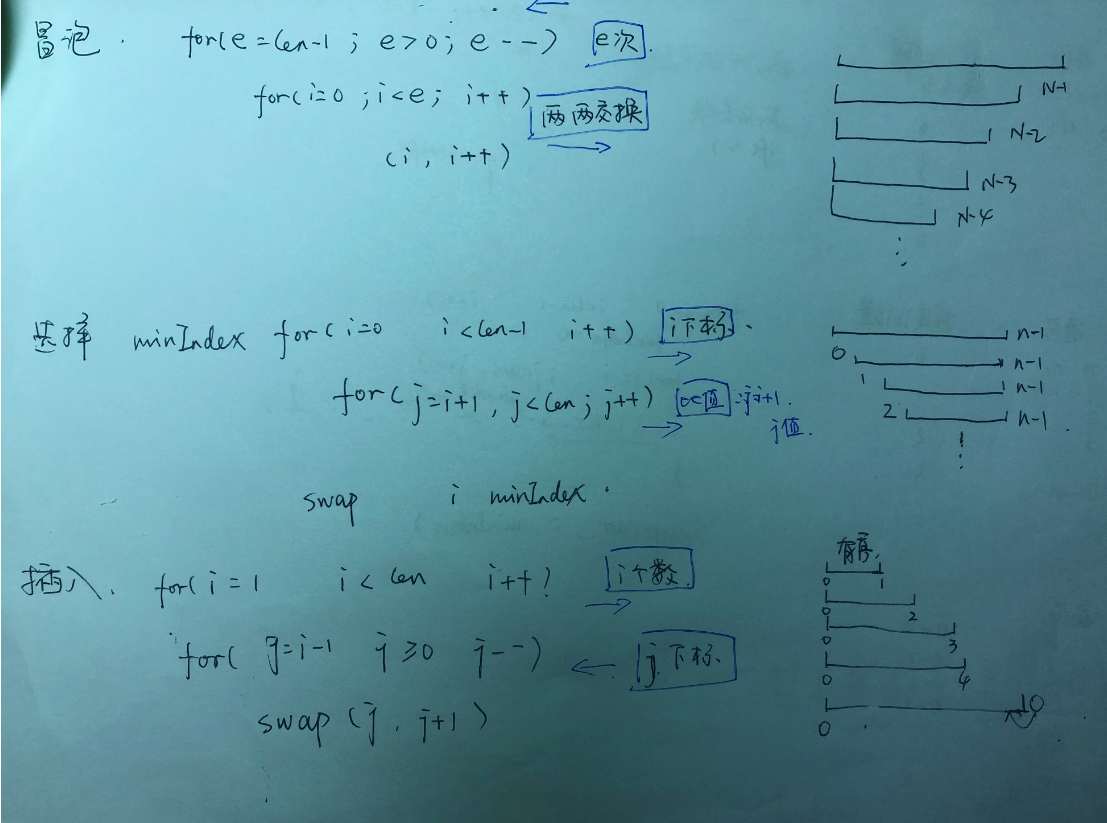 冒泡. for(e=len-1 ; e>0; e--) e次.
for(i=0 ; i<e; i++) 两两交换
(i, i++)
N-1
N-2
N-3
N-4
选择 minIndex for(i=0 i<len-1 i++) i下标.
for(j=i+1, j<len; j++) 值: j=i+1.
j值.
swap i minIndex.
n-1
0 n-1
1 n-1
2 n-1
插入. for(i=1 i<len i++) i个数.
for( j=i-1 j≥0 j--) j下标.
swap(j, j+1)
有序.
0 1
0 2
0 3
0 4
0